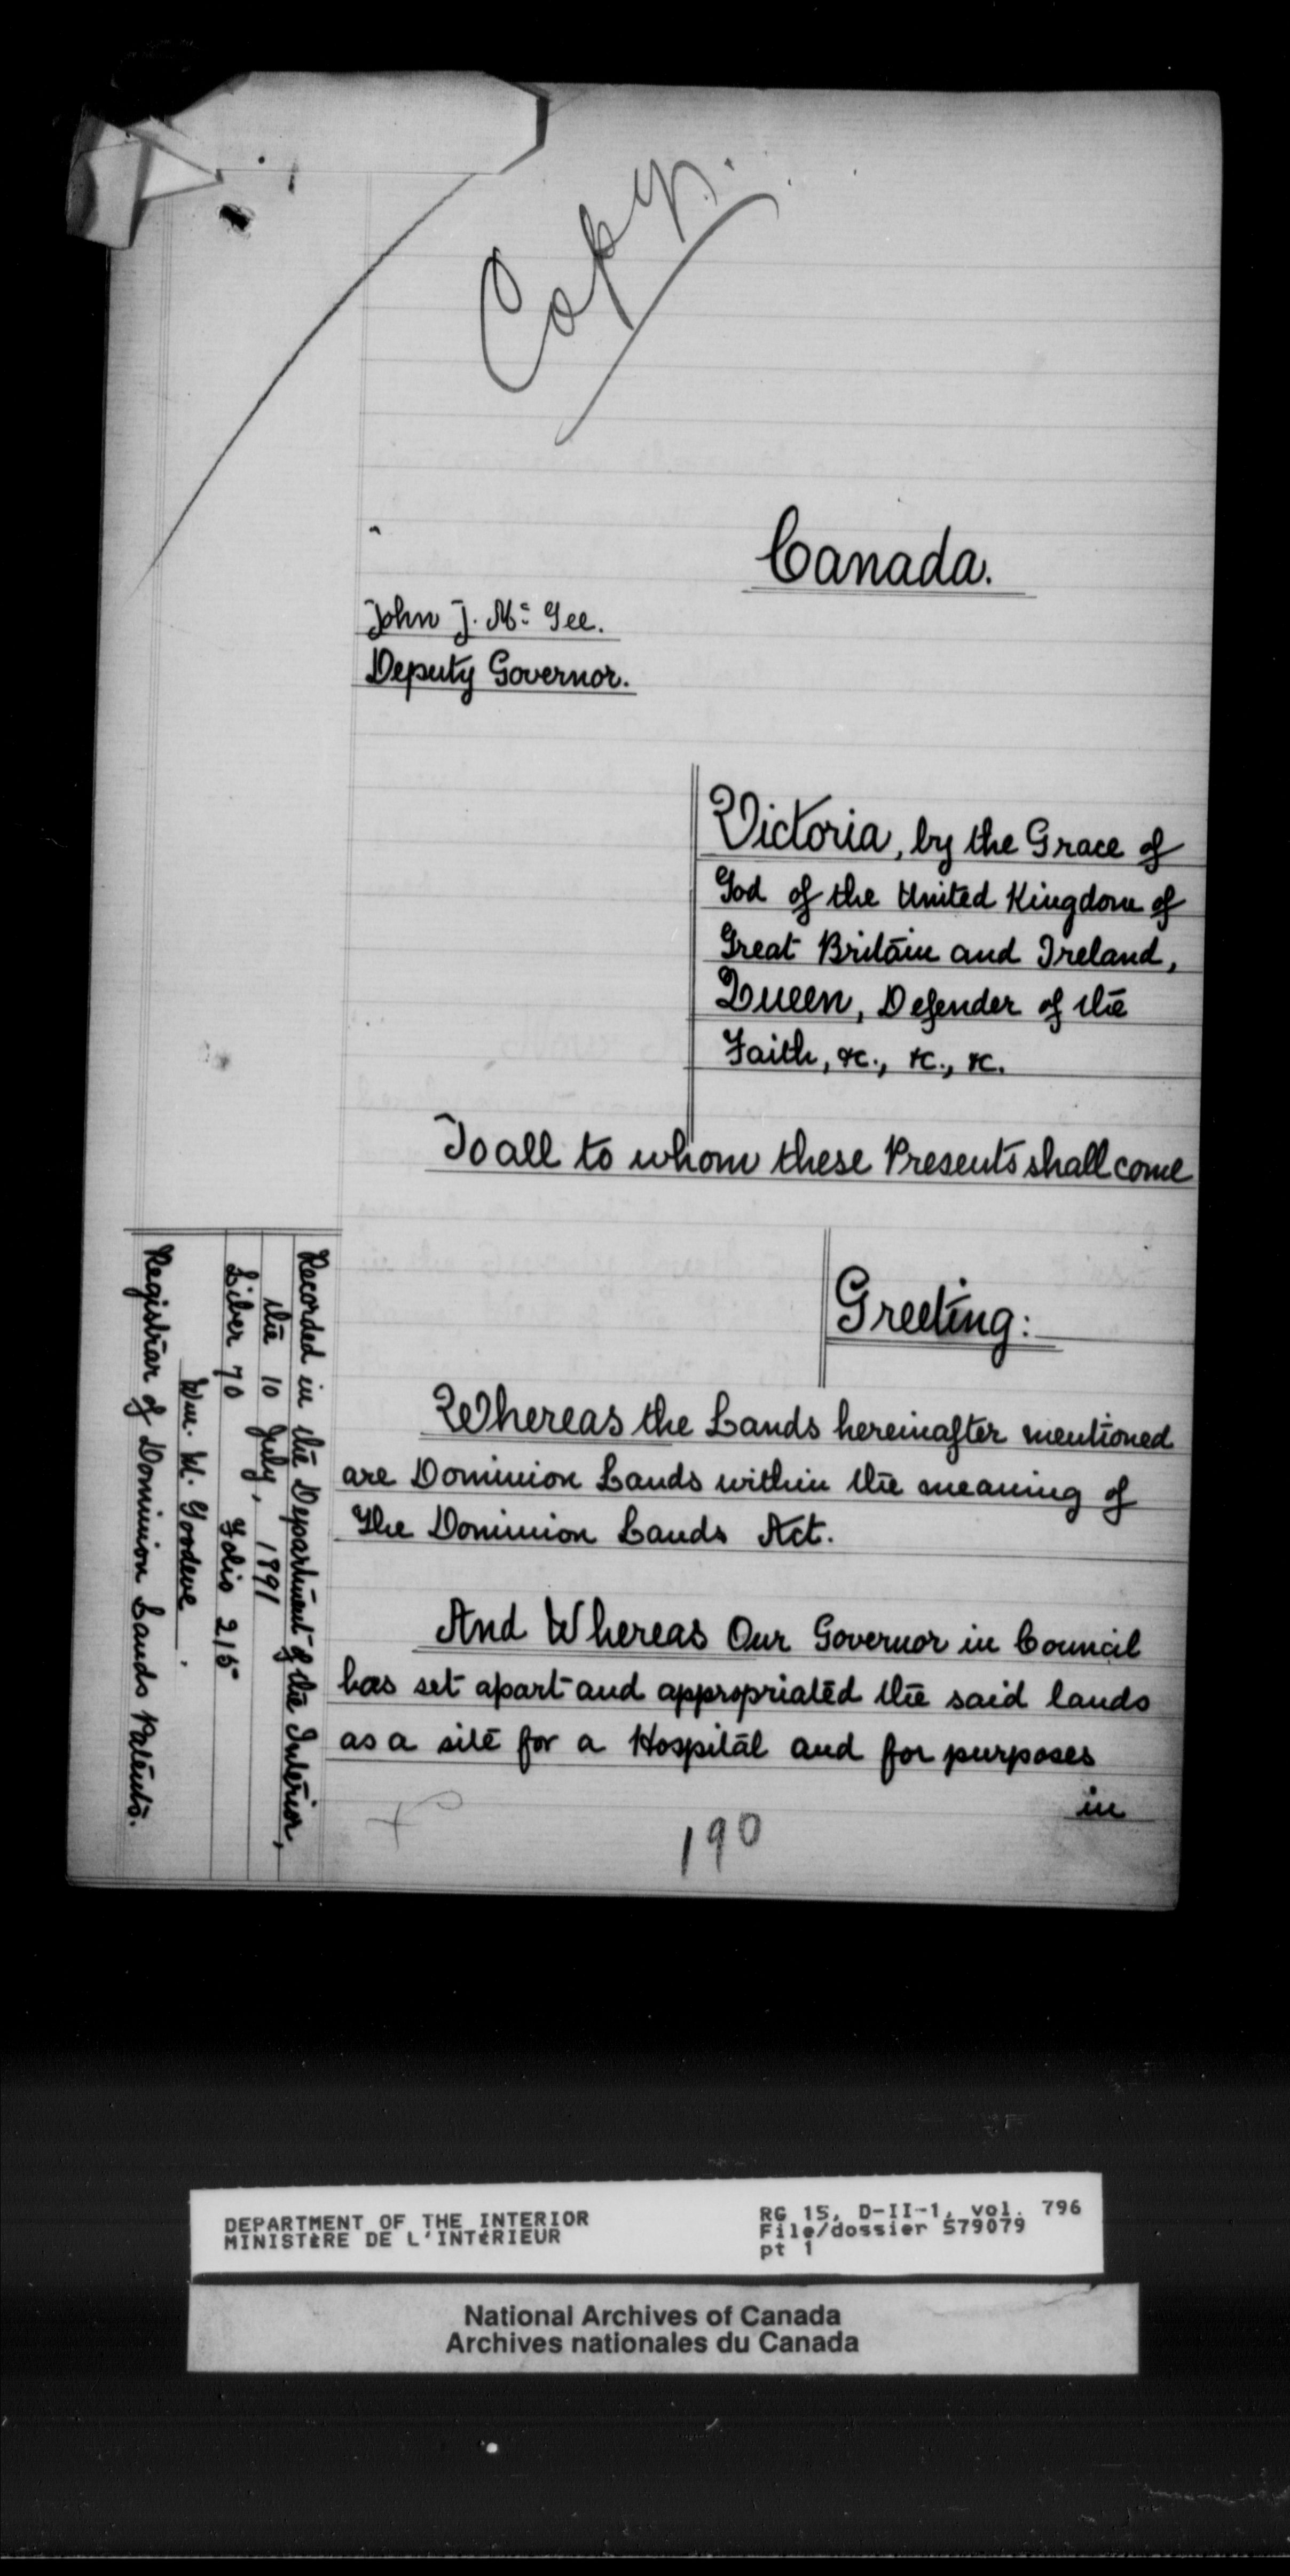 Copy.
Canada.
John J. Mc Gee.
Deputy Governor.
Victoria, by the Grace of
God of the United Kingdom of
Great Britain and Ireland,
Queen, Defender of the
Faith, &c., &c., &c.
To all to whom these Presents shall come
Greeting:
Whereas the Lands hereinafter mentioned
are Dominion Lands within the meaning of
The Dominion Lands Act.
And Whereas Our Governor in Council
has set apart and appropriated the said lands
as a site for a Hospital and for purposes
in
190
Recorded in the Department of the Interior,
the 10 July, 1891
Liber 70 Folio 215
Wm. M. Goodeve.
Registrar of Dominion Lands Patents.
DEPARTMENT OF THE INTERIOR
MINISTÈRE DE L'INTÉRIEUR
RG 15, D-II-1, vol. 796
File/dossier 579079
pt 1
National Archives of Canada
Archives nationales du Canada